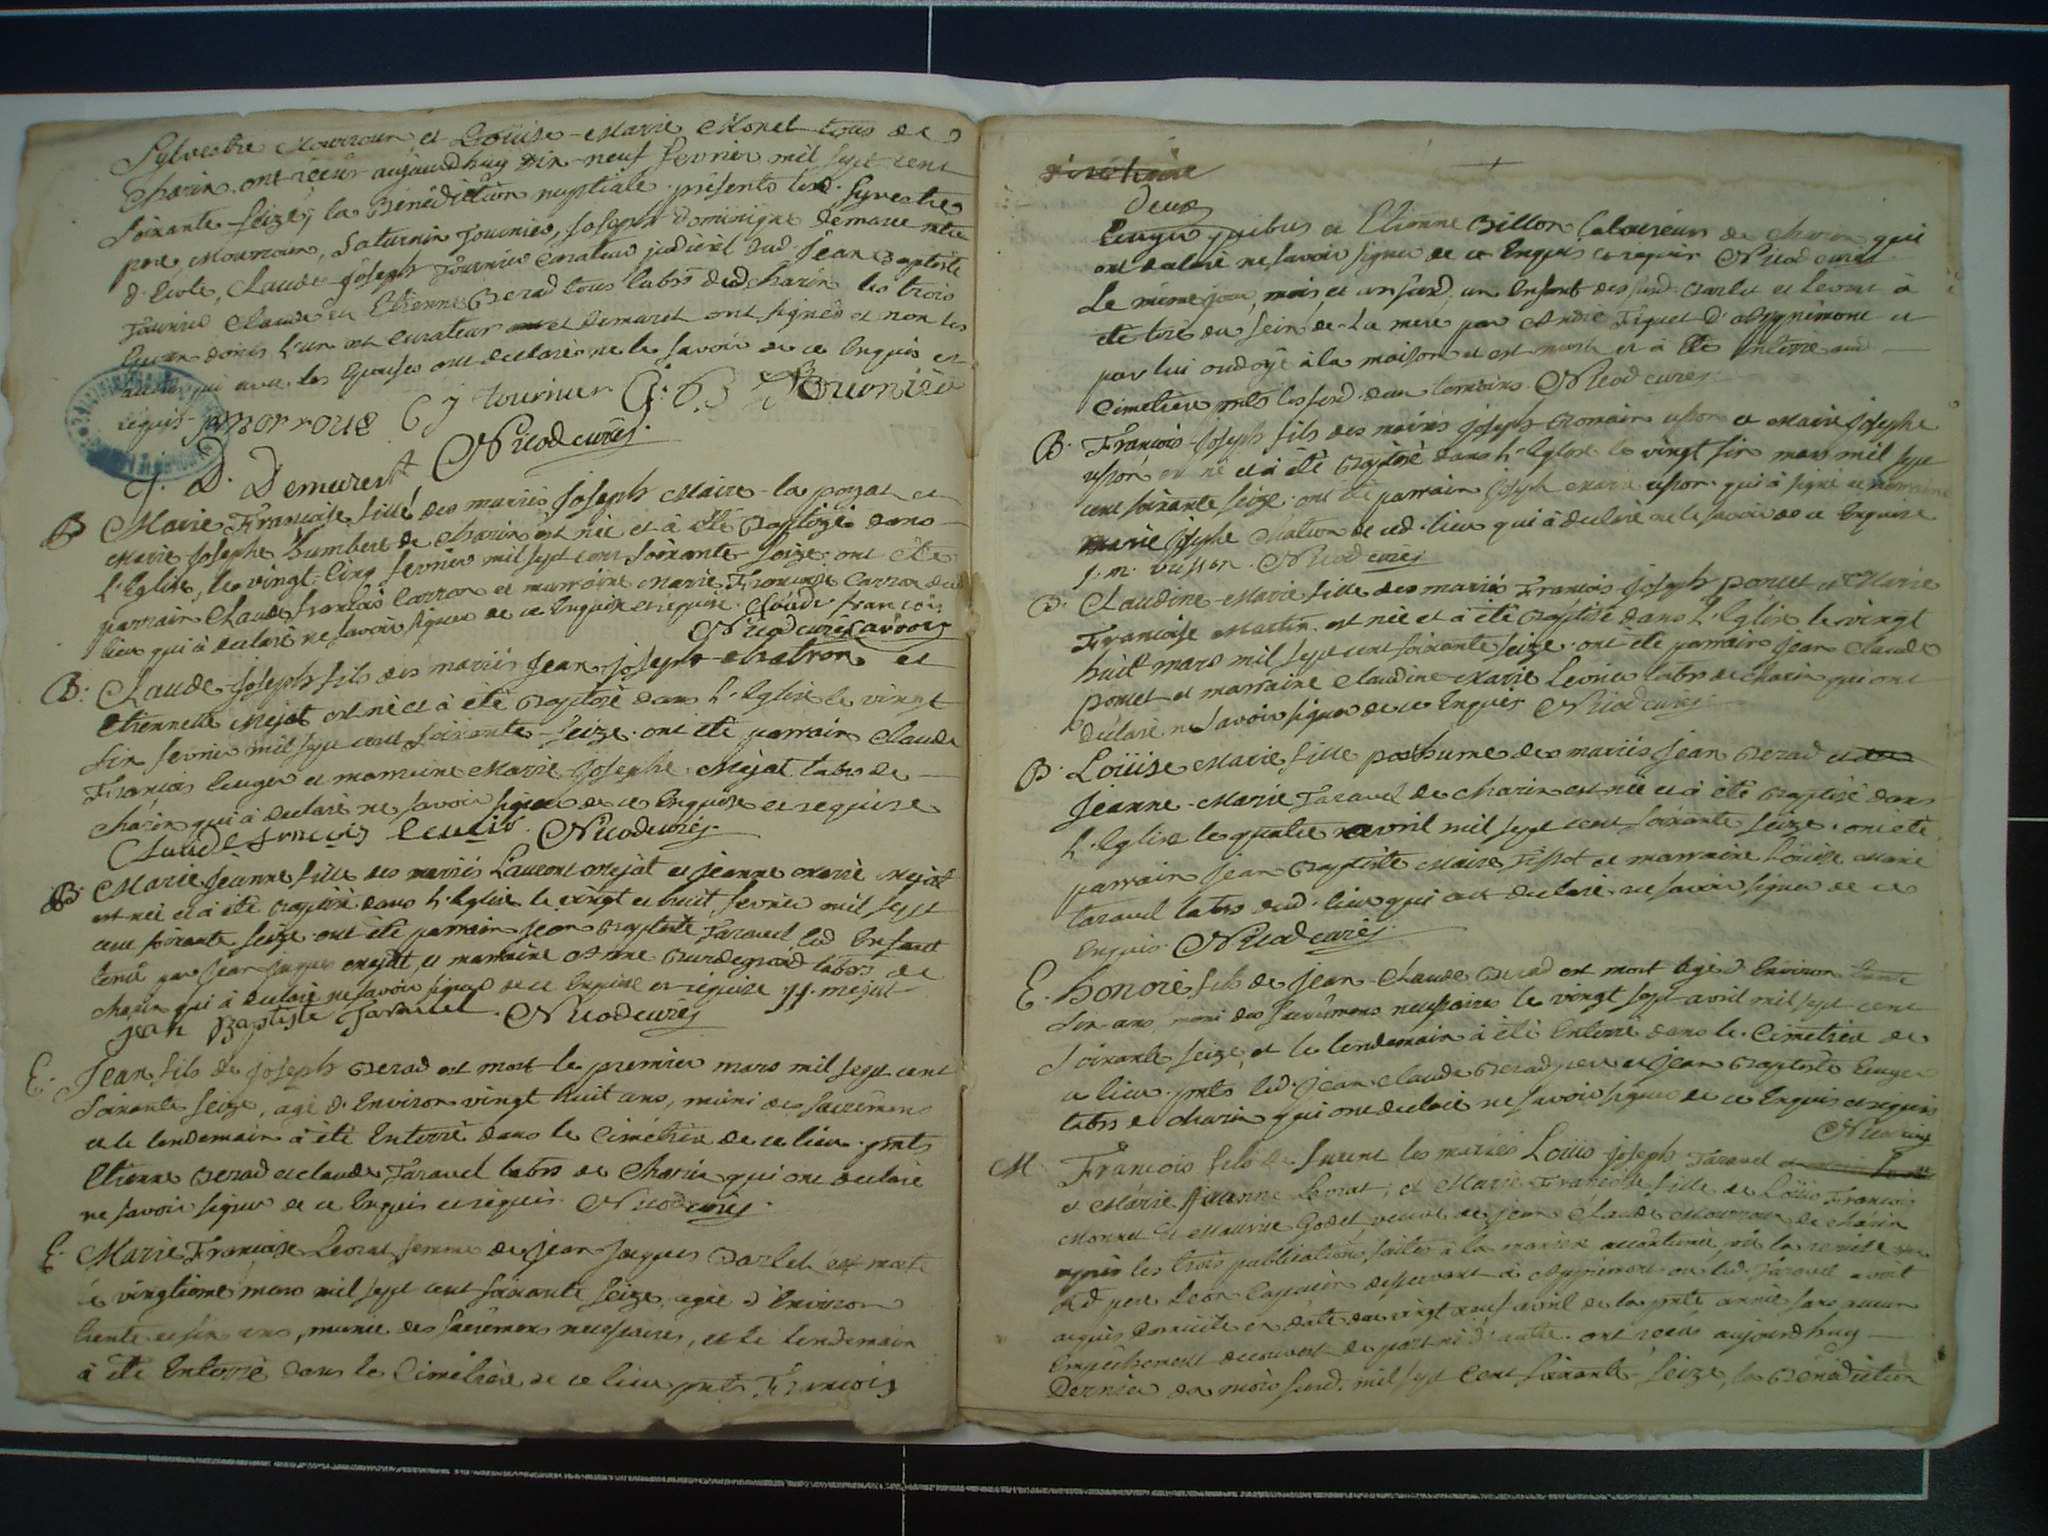 Sylvestre Mourroux et Loüise-Marie Monet tous de
Charix ont reçus aujourdhuy Dix-neuf fevrier mil sept cent
soixante-seize, la Bénédiction nuptiale. présents led. Sylvestre
pere Mourroux, Saturnin Tournier, Joseph dominique Demaret mtre
d'Ecole, Claude-Joseph Tournier Curateur judiciel dud. Jean Baptiste
Tournier Claude et Etienne Berad tous labrs dud Charix les trois
dont l'un est Curateur et Demaret ont signés et non les
autres qui avec les Epouses ont declaré ne le savoir de ce Enquis et
requis. morroux C j tournier J. B. Tournier
J. D. Demurest Nicod curé.
B Marie Françoise fille des mariés Joseph Maire-la pozat et
Marie Josephe humbert de Charix est née et à été Baptizée dans
l'Eglise, le vingt-cinq fevrier mil sept cent soixante-seize. ont été
parrain Claude françois Carron et marraine Marie Françoise Carron dud
lieu qui à declaré ne savoir signer de ce Enquise et requise. Claude françois
Nicod curé Carron
B. Claude-Joseph fils des mariés Jean-Joseph Chatron et
Etiennette Mejat est né et à été Baptisé dans l'Eglise le vingt
six fevrier mil sept cent soixante-seize. ont été parrain Claude
François Euger et marraine Marie Josephe Mejat labrs de
Charix qui à declaré ne savoir signer de ce Enquise et requise
Claude francois Nicod curé.
B. Marie Jeanne fille des mariés Laurent Mejat et Jeanne Marie Mejat
est née et à été Baptisé dans l'Eglise le vingt et huit fevrier mil sept
cent soixante seize. ont été parrain Jean Baptiste Taravel led Enfant
tenu par Jean Jaques mejat, et marraine Anne labrs de
Charix qui à declaré ne savoir signer de ce Enquise et requise J J. mejat
jean Baptiste Taravel. Nicod curé
E. Jean fils de Joseph Berad est mort le premier mars mil sept cent
soixante seize, agé d'Environ vingt huit ans, muni des sacrémens
et le lendemain à été Enterré dans le Cimetière de ce lieu. pnts
Etienne Berad et claude Taravel labrs de Charix qui ont declaré
ne savoir signer de ce Enquis et requis. Nicod curé.
E. Marie Françoise Levrat femme de Jean Jacques Barlet est morte
le vingtième mars mil sept cent soixante seize, agée d'Environ
trente et six ans, munie des sacrémens necessaires, et le lendemain
à été Enterré dans le Cimetière de ce lieu pnts François
Deux
Euger et Etienne Billon laboureurs de Charix qui
ont declaré ne savoir signer de ce Enquis et requis Nicod curé
Le même jour, mois et an susd. un Enfant des susd. Barlet et Levrat à
été tiré du sein de la mere par André Figuet d'Apprémont et
par lui ondoyé à la maison et est mort et à été Enterré aud
Cimetière pnts les susd. deux temoins. Nicod curé.
B. François-Joseph fils des mariés Joseph Romain usson et Marie Josephe
usson est né et à été Baptisé dans l'Eglise le vingt six mars mil sept
cent soixante seize. ont été parrain Joseph Marie usson qui à signé et marraine
Marie Josephe Chatron de ced. lieu qui à declaré ne le savoir de ce Enquise
j. m. vusson. Nicod curé.
B. Claudine-Marie fille des mariés François-Joseph poncet et Marie
Françoise Martin est née et à été Baptisé dans l'Eglise le vingt
huit mars mil sept cent soixante seize. ont été parrain Jean Claude
poncet et marraine Claudine-Marie labrs de Charix qui ont
declaré ne savoir signer de ce Enquis Nicod curé.
B. Loüise Marie fille posthume des mariés Jean Berad et
Jeanne-Marie Taravel de charix est née et à été Baptisé dans
l'Eglise le quatre avril mil sept cent soixante seize. ont été
parrain Jean Baptiste Maire Tissot et marraine Loüise Marie
taravel labrs dud. lieu qui ont declaré ne savoir signer de ce
Enquis. Nicod curé.
E. Honoré fils de Jean-Claude Berad est mort agé d'Environ trente
six ans, muni des sacrémens necessaires le vingt sept avril mil sept cent
soixante seize, et le lendemain à été Enterré dans le Cimetière de
ce lieu. pnts led. Jean-Claude Berad pere et Jean Baptiste Euger
labrs de charix qui ont declaré ne savoir signer de ce Enquis et requis
Nicod curé
M. François fils de furent les mariés Loüis Joseph Taravel
et Marie Jeanne Levrat, et Marie-Françoise fille de Loüis François
Monnet et Maurise Godet veuve de Jean Claude Mourroux de charix
après les trois publications faites à la maniere accoutumée, vû la remise
Rd pere Leon Capucin desservant à Apprémont où led. Taravel avoit
acquis domicile en date du vingt neuf avril de la pnte année sans aucun
Empêchement decouvert de part ni d'autre. ont reçus aujourdhuy
Dernier du mois susd. mil sept cent soixante-seize, la Bénédiction